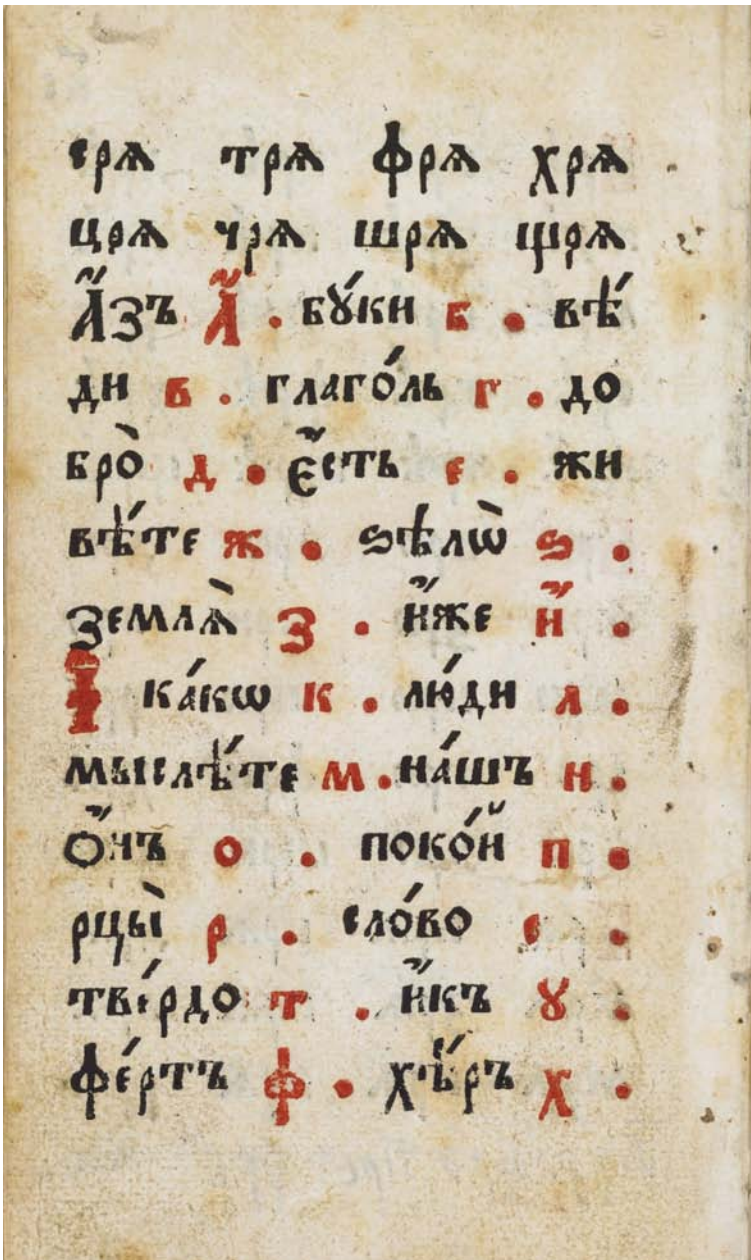 срѧ трѧ фрѧ хрѧ
црѧ чрѧ шрѧ щрѧ
А҆́зъ А҆́ . бꙋ́ки б . вѣ́
ди в . глаго́ль г . до
бро̀ д . є҆́сть е . жи
вѣ́те ж . ѕѣлѡ̀ ѕ .
землѧ̀ з . и҆́же и҆́ .
І ка́кѡ к . лю́ди л .
мыслѣ́те м . на́шъ н .
Ѻ҆́нъ о . поко́й п .
рцы̀ р . сло́во с .
тве́рдо т . и҆́къ ꙋ .
фе́ртъ ф . хѣ́ръ х .